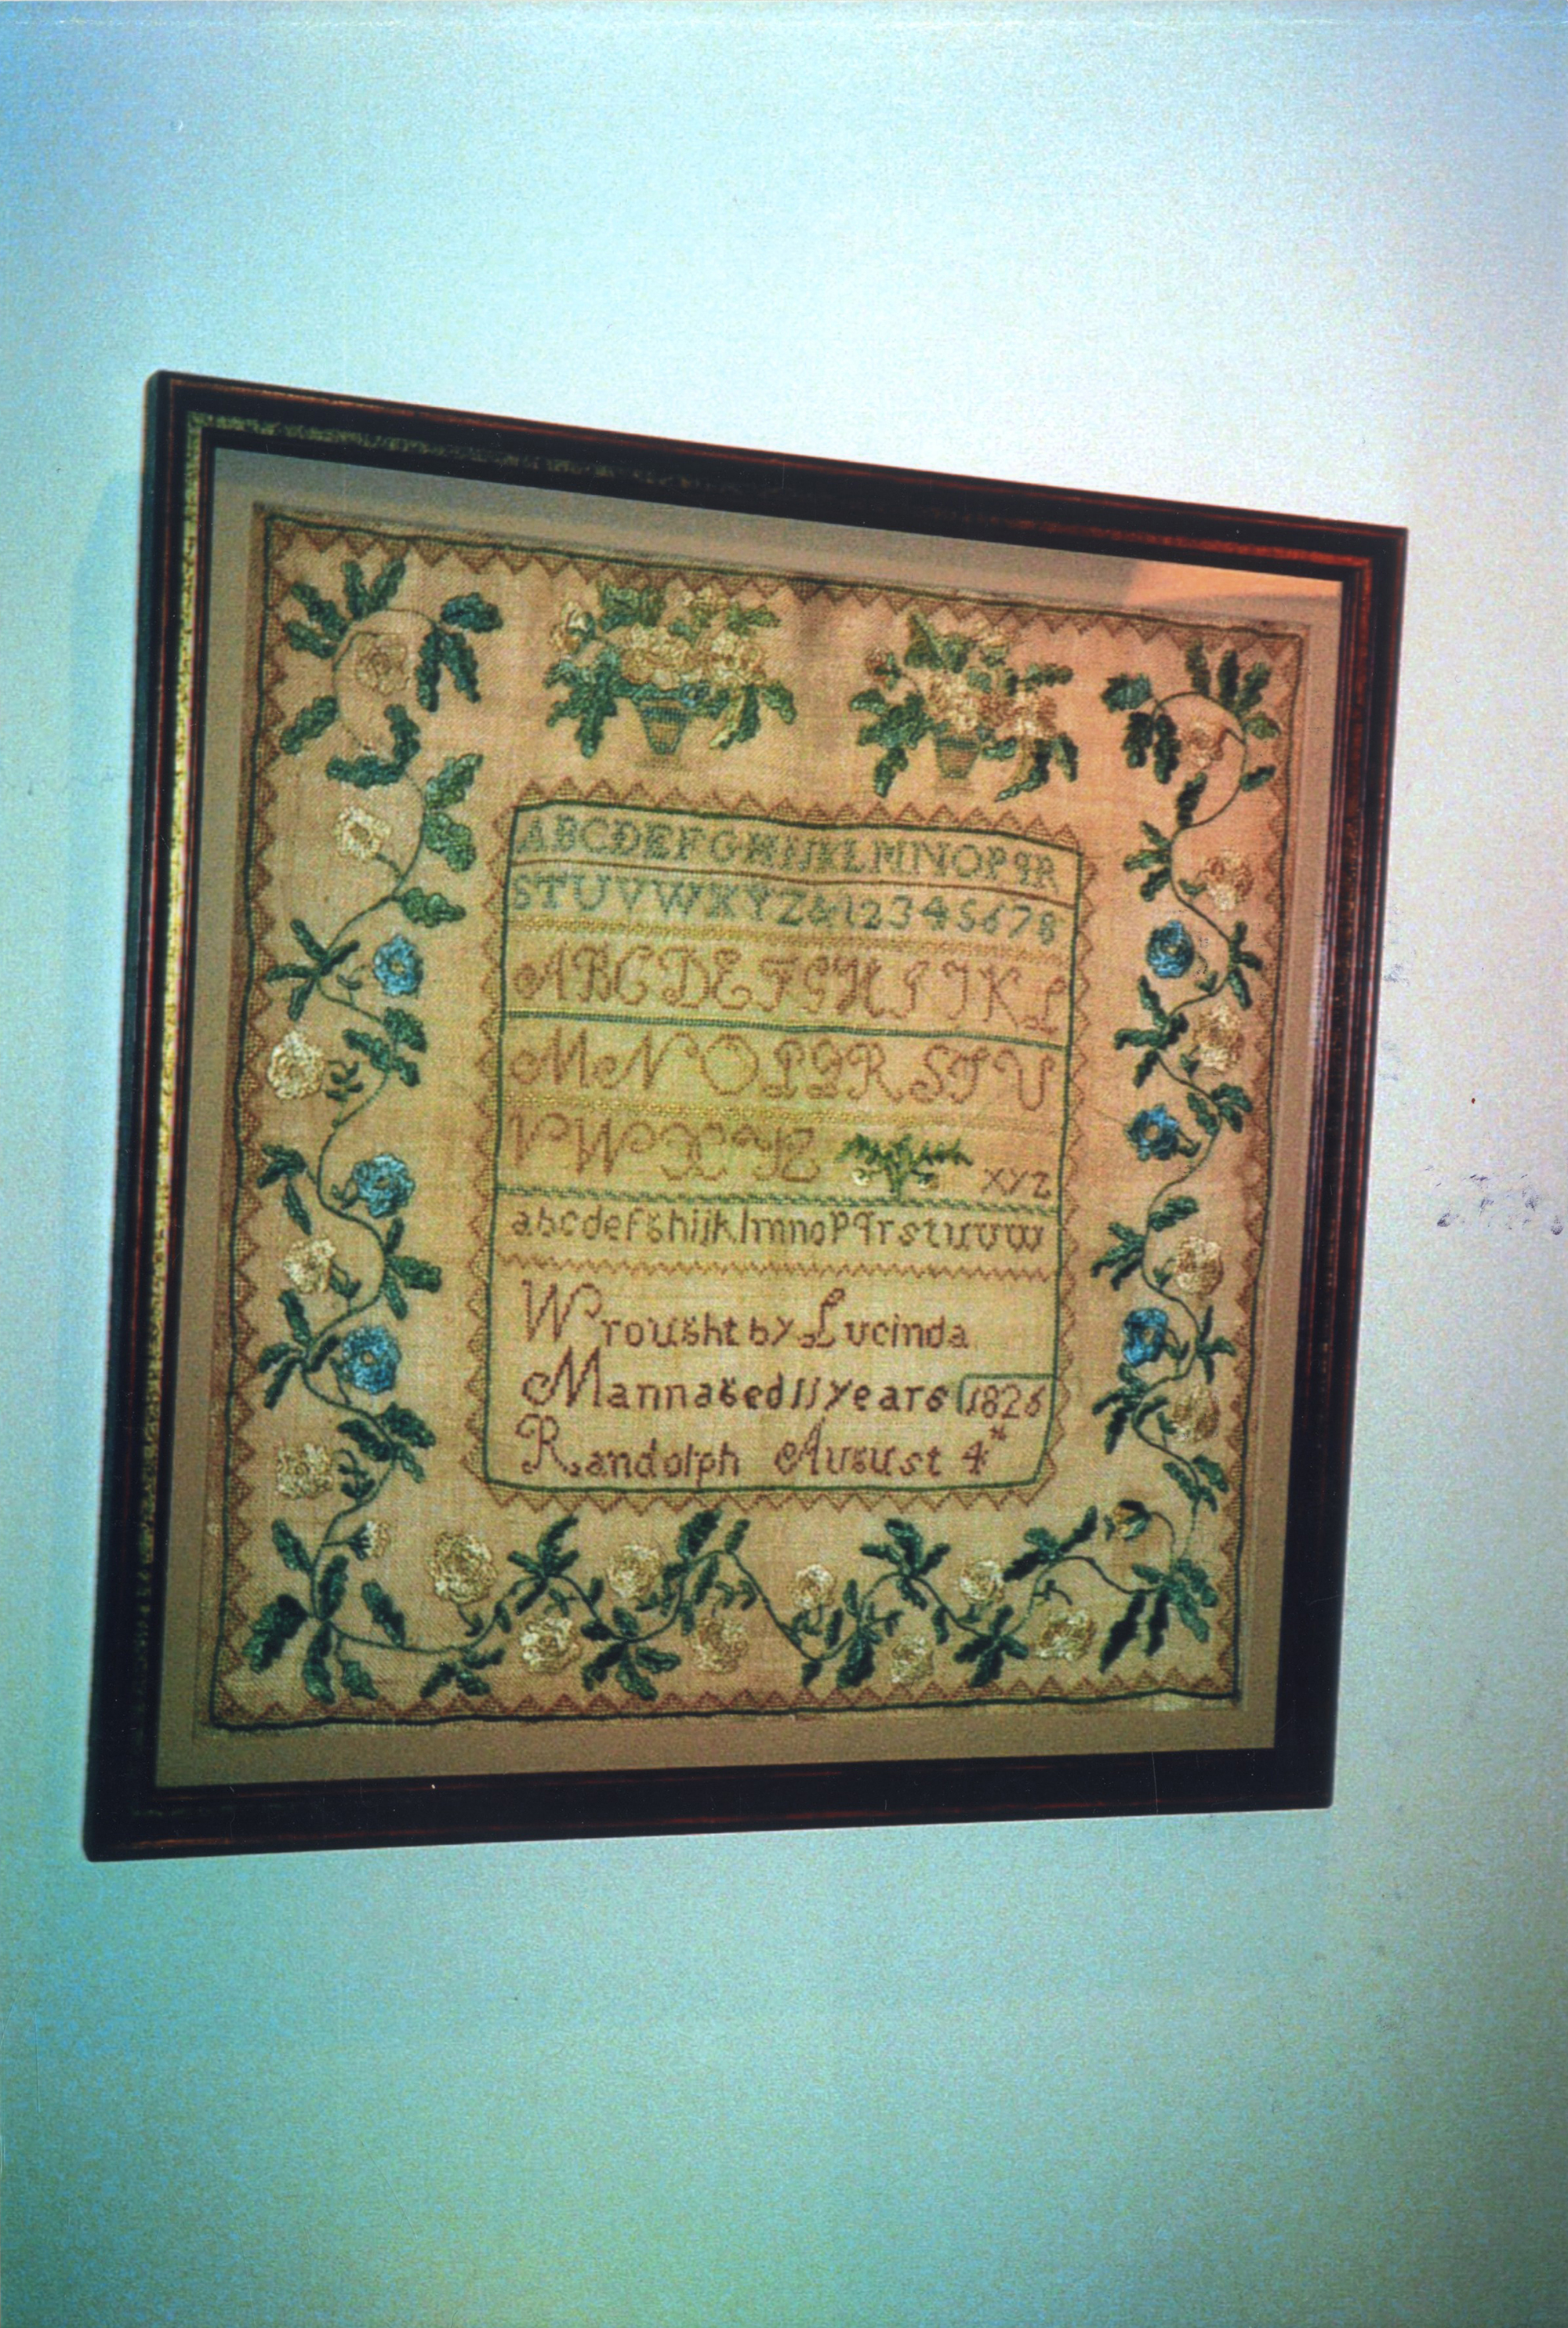 ABCDEFGHIJKLMNOPqR
STUVWXYZ&12345678
ABCDEFGHIJKL
MNOPQRSTU
VWXYZ xyz
abcdefghijklmnopqrstuvw
Wrought by Lucinda
Mann aged 11 years 1826
Randolph August 4th